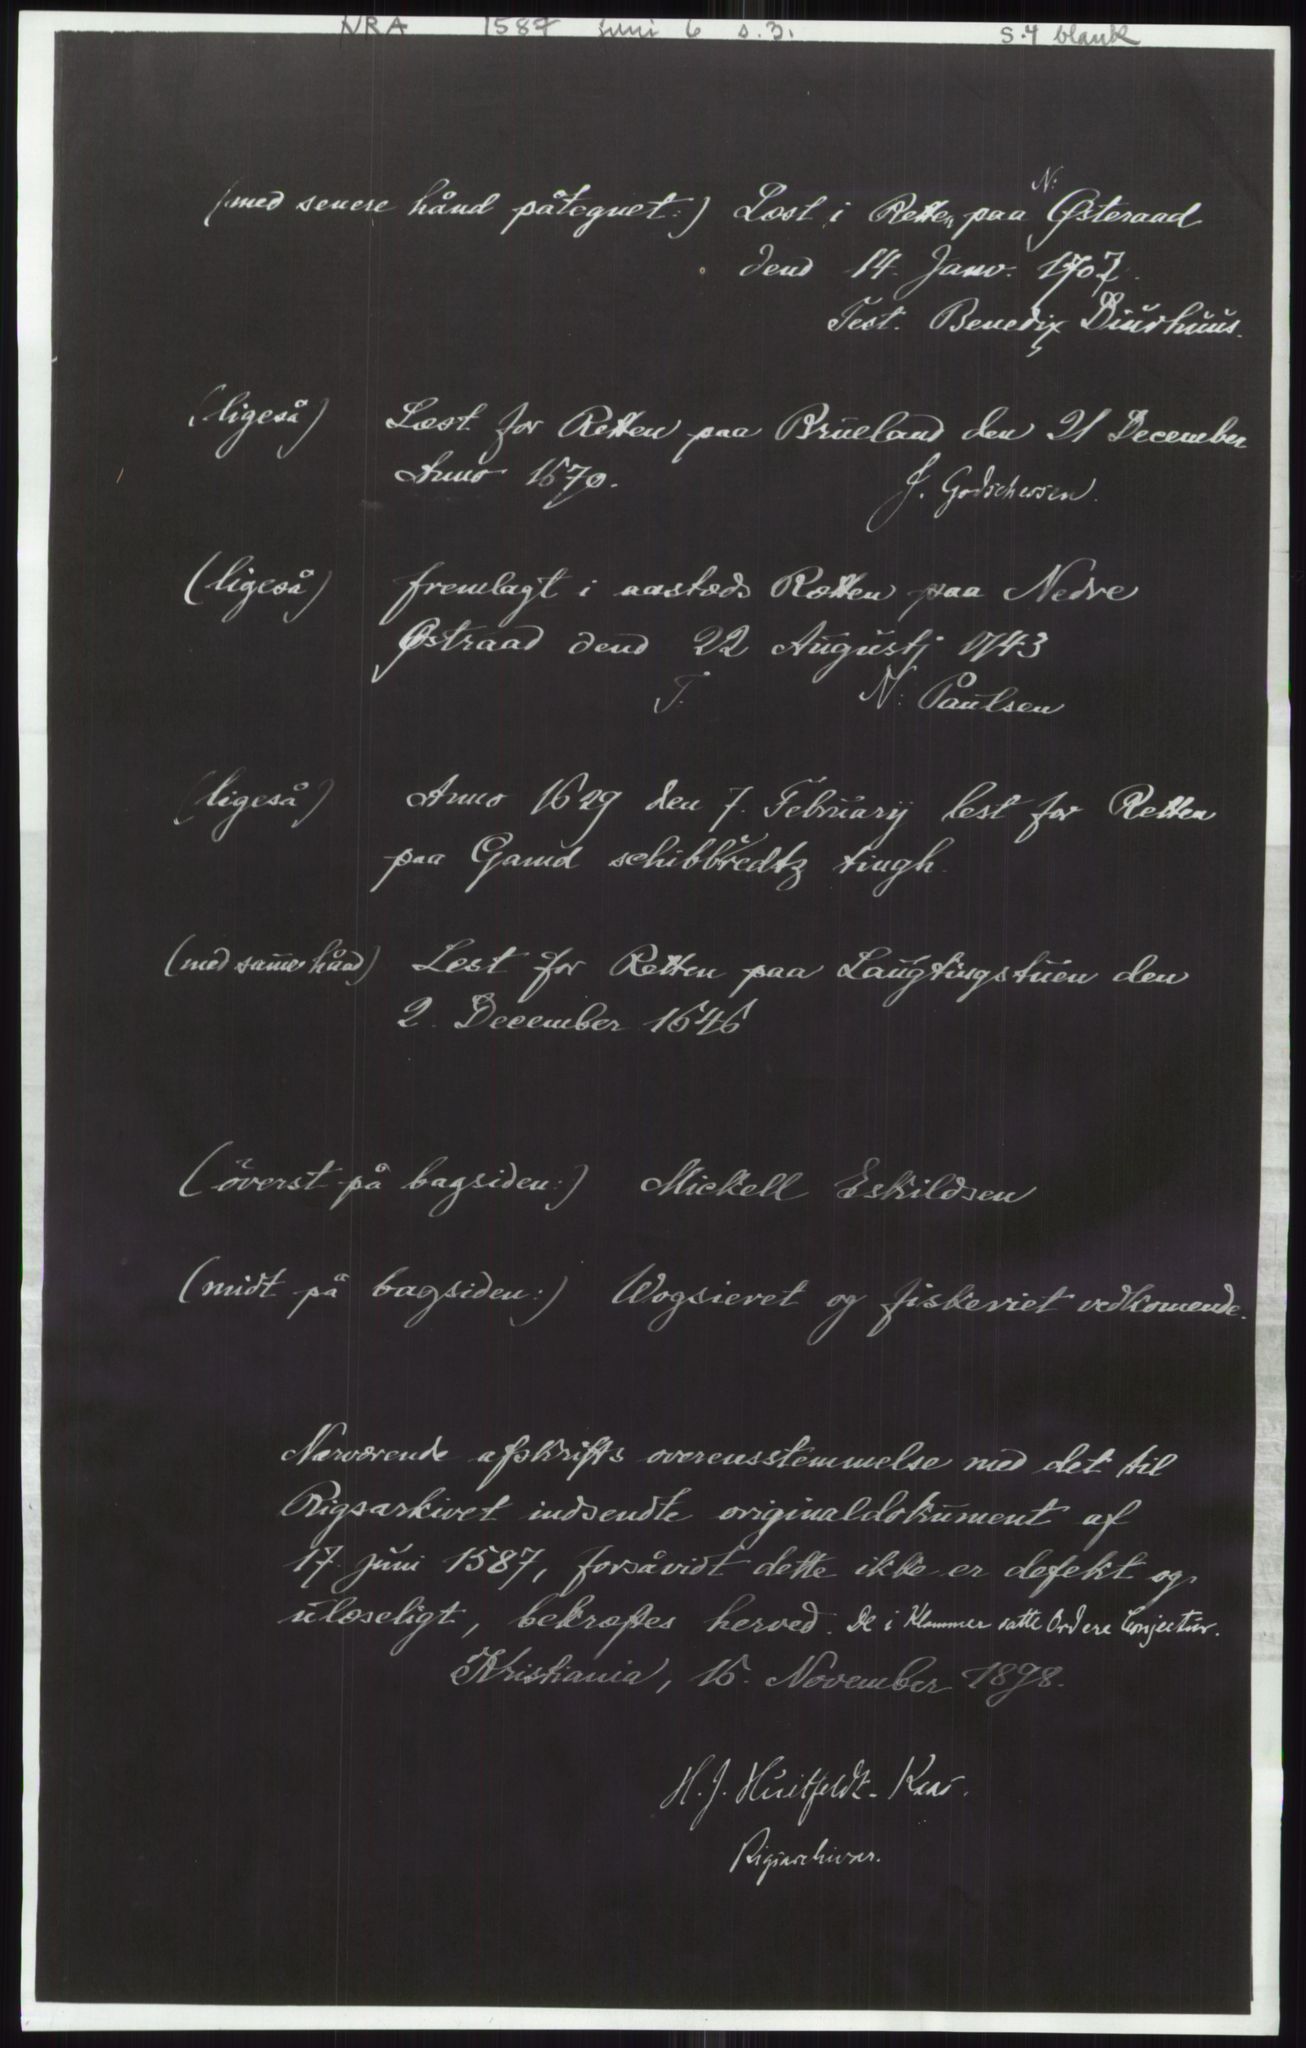 NRA 1587 juni 6 s. 3. S. 4 blank
(med senere hånd påtegnet:) Læst i Retten paa N: Østeraad
dend 14. Janv. 1707.
Test. Benedix Diurhuus.
(ligeså) Læst for Retten paa Brueland den 21 December
Anno 1670. J. Godschersen.
(ligeså) fremlagt i aasteds Rætten paa Nedre
Østraad dend 22 Augustj 1743
T. N: Paulsen
(ligeså) Anno 1629 den 7. February lest for Retten
paa Gamd schibbredtz tingh.
(med samme hånd) Lest for Retten paa Laugtingstuen den
2. December 1646
(överst på bagsiden:) Mickell Eskildsen
(midt på bagsiden:) Wogsieret og fiskeriet vedkomende.
Nærværende afskrifts overensstemmelse med det til
Rigsarkivet indsendte originaldokument af
17. juni 1587, forsåvidt dette ikke er defekt og
ulæseligt, bekræftes herved. De i Klammer satte Ord ere Conjectur.
Kristiania, 16. November 1898.
H. J. Huitfeldt-Kaas.
Rigsarchivar.